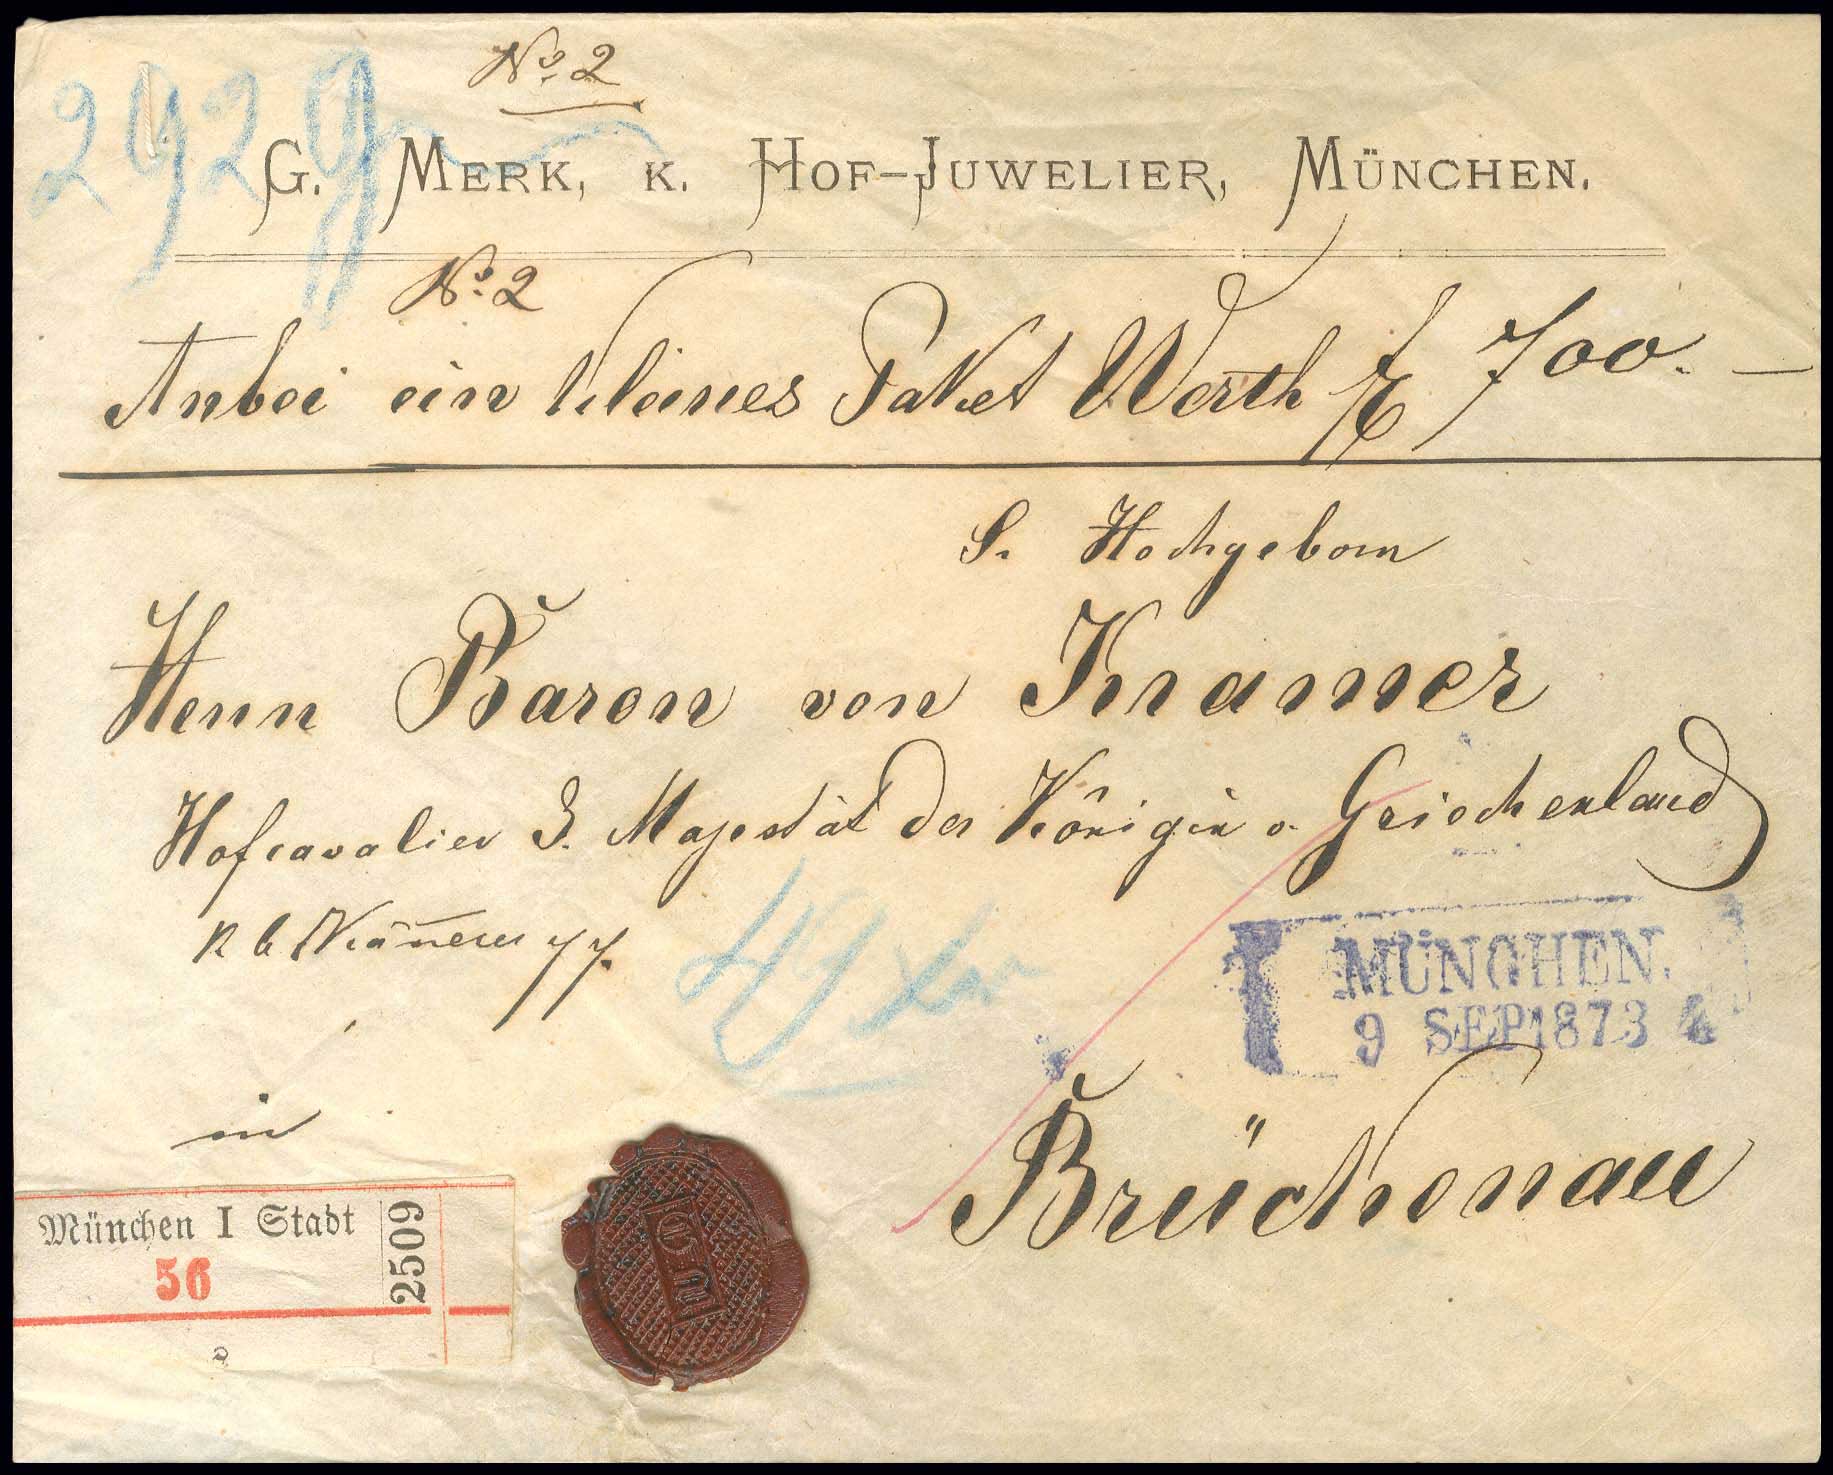 No. 2
292 gr
G. MERK, K. HOF-JUWELIER, MÜNCHEN.
No. 2
Anbei ein kleines Paket Werth fl 700. —
S. Hochgeborn
Herrn Baron von Kramer
Hofcavalier I. Majestät der Königin v. Griechenland
k b Kämerer pp.
49 kr
MÜNCHEN.
9 SEP 1873 4
in
Brückenau
München I Stadt
56
2509